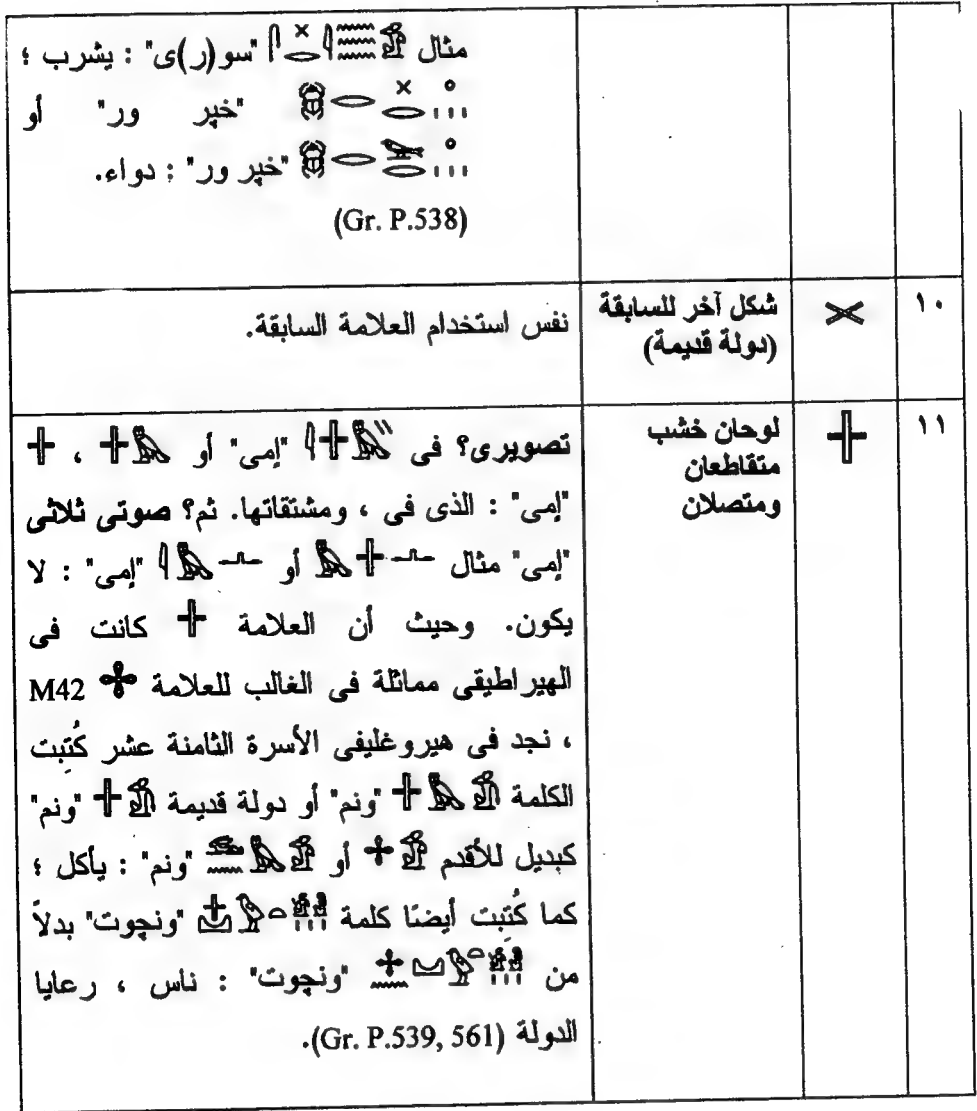 مثال 𓋴𓏴𓂋𓇋𓈗𓀁 "سو(ر)ى" : يشرب ؛
"خپر ور" أو
"خپر ور" : دواء.
(Gr. P.538)
١٠
شكل آخر للسابقة
(دولة قديمة)
نفس استخدام العلامة السابقة.
١١ 𓏶
لوحان خشب
متقاطعان
ومتصلان
تصويرى؟ فى 𓇋𓏶𓅓𓏮 "إمى" أو 𓏶𓅓 ، 𓏶
"إمى" : الذى فى ، ومشتقاتها. ثم؟ صوتى ثلاثى
"إمى" مثال 𓂜𓏶𓅓 أو 𓂜𓅓𓇋 "إمى" : لا
يكون. وحيث أن العلامة 𓏶 كانت فى
الهيراطيقى مماثلة فى الغالب للعلامة 𓇬 M42
، نجد فى هيروغليفى الأسرة الثامنة عشر كُتِبت
الكلمة 𓏶𓅓𓀁 "ونم" أو دولة قديمة 𓏶𓀁 "ونم"
كبديل للأقدم 𓇬𓀁 أو "ونم" : يأكل ؛
كما كُتِبت أيضًا كلمة "ونچوت" بدلاً
من "ونچوت" : ناس ، رعايا
الدولة (Gr. P.539, 561).